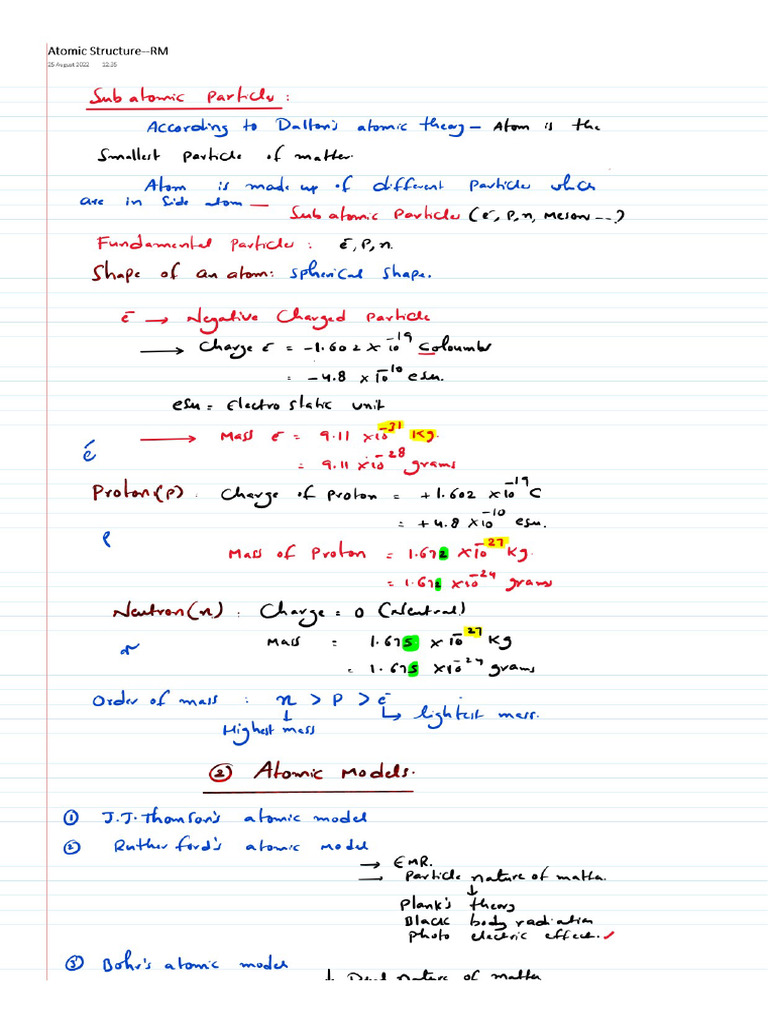 Atomic Structure--RM
25 August 2022 12:35
Sub atomic Particles :
According to Dalton's atomic theory - Atom is the
Smallest particle of matter.
Atom is made up of different particles which
are in side atom —
Sub atomic Particles (e⁻, P, n, Meson ---)
Fundamental Particles : e⁻, P, n.
Shape of an atom: spherical shape.
e⁻ → Negative Charged Particle
→ Charge e⁻ = -1.602 × 10⁻¹⁹ Coloumbs
= -4.8 × 10⁻¹⁰ esu.
esu = Electro static unit
→ Mass e⁻ = 9.11 × 10⁻³¹ Kg.
e⁻
= 9.11 × 10⁻²⁸ grams
Proton(P) : Charge of Proton = +1.602 × 10⁻¹⁹ C
= +4.8 × 10⁻¹⁰ esu.
P
Mass of Proton = 1.672 × 10⁻²⁷ Kg.
= 1.672 × 10⁻²⁴ grams
Neutron(n) : Charge = 0 (Neutral)
n
Mass = 1.675 × 10⁻²⁷ Kg
= 1.675 × 10⁻²⁴ grams
Order of mass : n > P > e⁻
↓ ↳ lightest mass.
Highest mass
② Atomic Models.
① J.J.Thomson's atomic model
② Ruther ford's atomic model
→ EMR.
→ Particle nature of matter.
↓
Plank's theory
Black body radiation
Photo electric effect. ✓
③ Bohr's atomic model
↓ Dual nature of matter